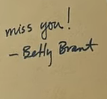 miss you!
– Betty Brant